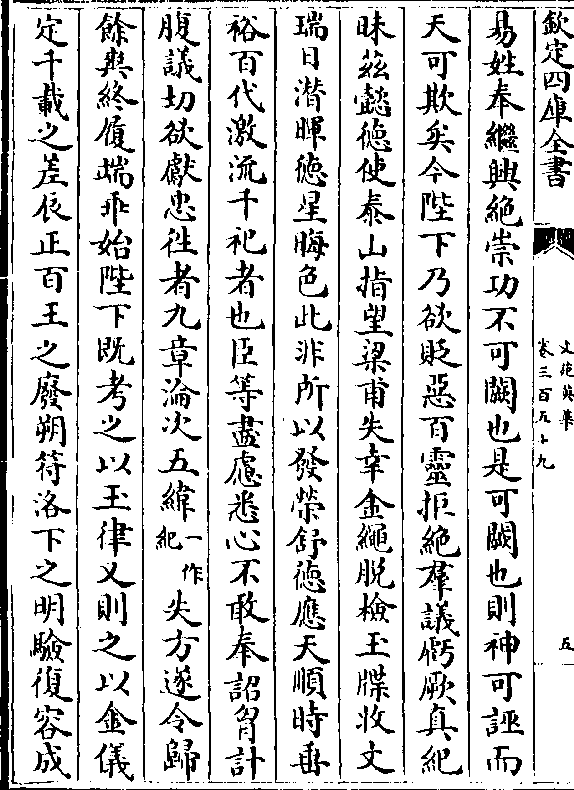 欽定四庫全書
文苑英華
卷三百五十九
五
易姓奉繼興絶崇功不可闕也是可闕也則神可誣而
天可欺矣今陛下乃欲貶惡百靈拒絶羣議虧厥真紀
昧兹懿德使泰山指望梁甫失幸金繩脱檢玉牒收文
瑞日潛暉德星晦色此非所以發榮舒德應天順時垂
裕百代激流千祀者也臣等盡慮悉心不敢奉詔胷計
腹議切欲獻忠往者九章淪次五緯一作紀失方遂令歸
餘與終履端乖始陛下既考之以玉律又則之以金儀
定千載之差辰正百王之廢朔符洛下之明驗復容成